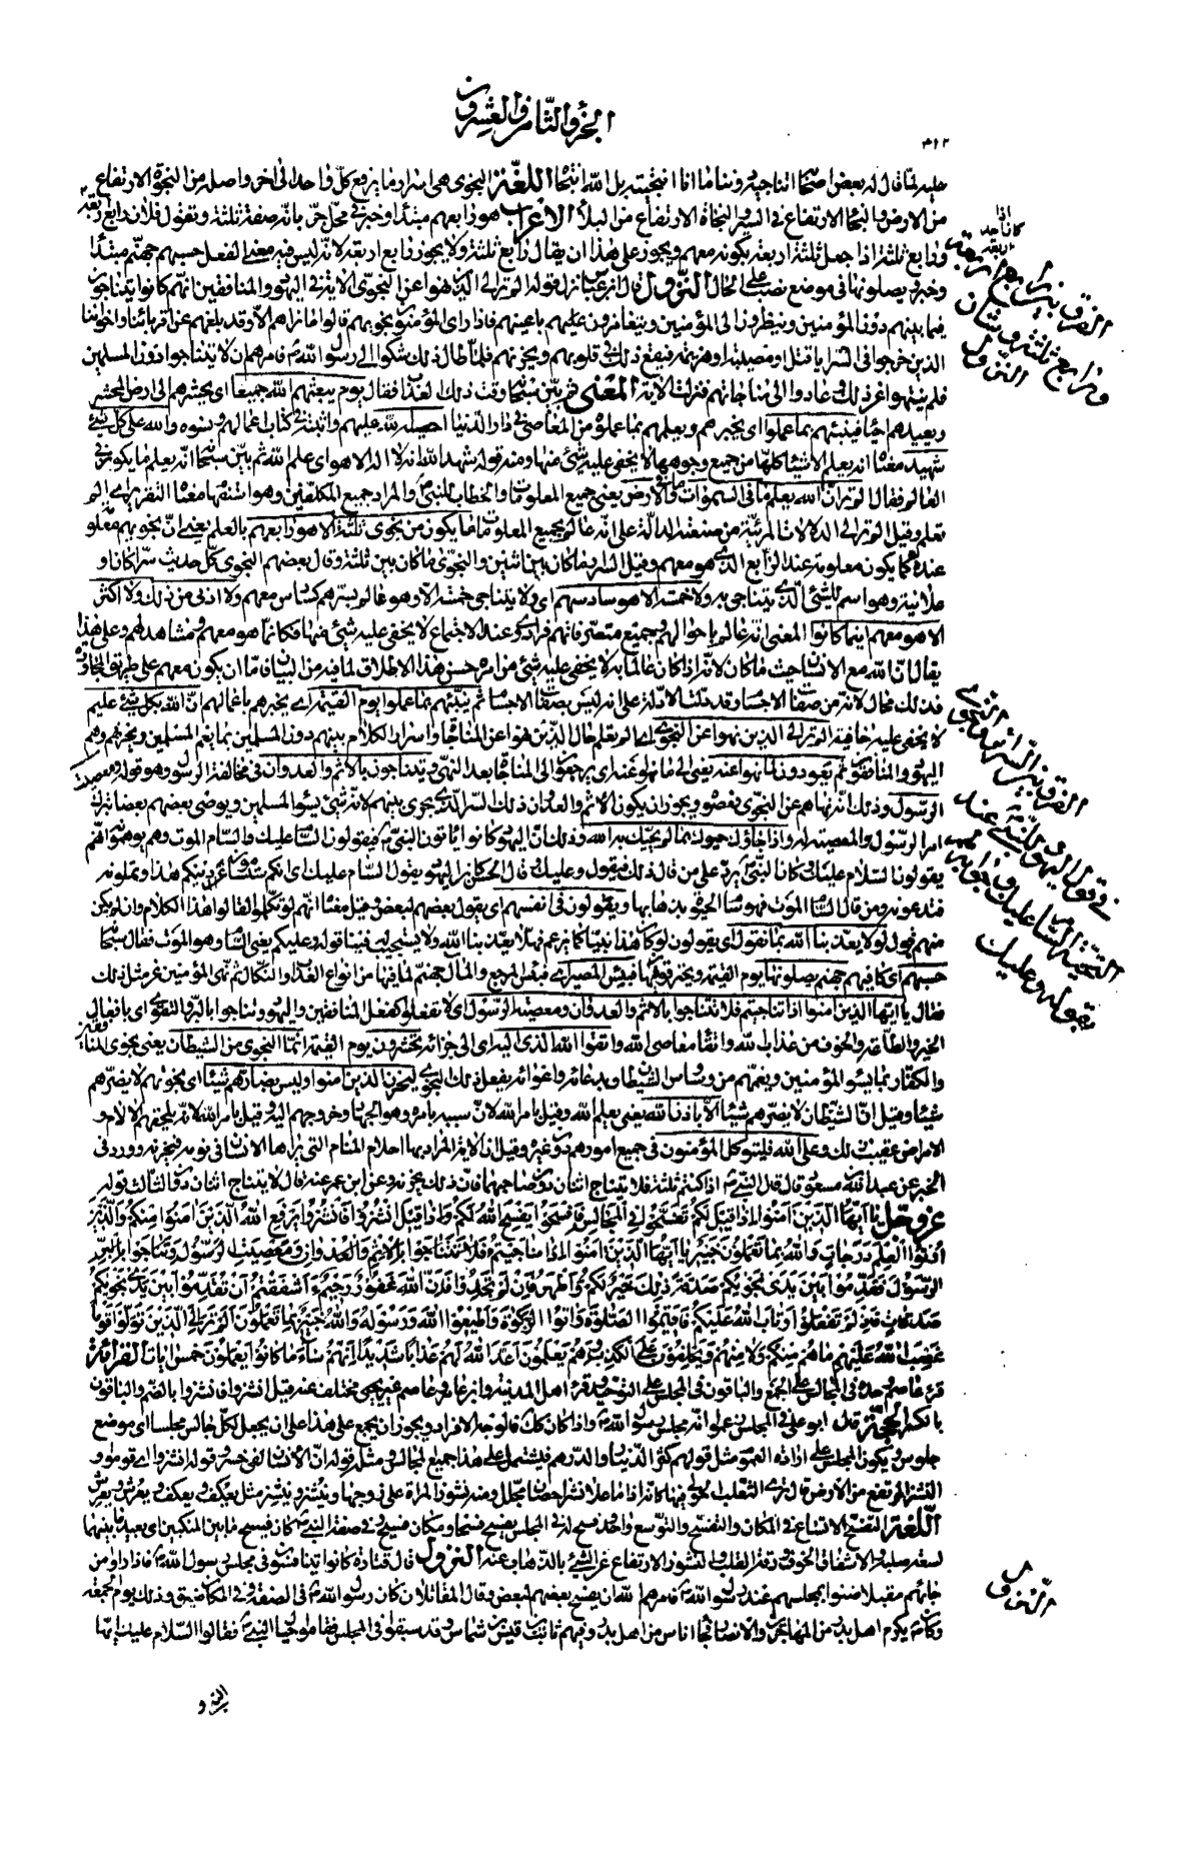 الجزء الثامن والعشرون
٣١٢
عليه لما قال له بعض اصحابه اتناجيه دوننا ما انا انتجيته بل الله انتجاه اللغة النجوى هي اسرار ما يرفع كل واحد الى اخر واصله من النجوة الارتفاع
من الارض والنجا الارتفاع في السير والنجاة الارتفاع من البلاء الاعراب هو رابعهم مبتدأ وخبر في محل جر بانه صفة ثلثة وتقول فلان رابع اربعة
ورابع ثلثة اذا جعل ثلثة اربعة بكونه معهم ويجوز على هذا ان يقال رابع ثلثة ولا يجوز رابع اربعة لانه ليس فيه معنى الفعل حسبهم جهنم مبتدأ
وخبر ويصلونها في موضع نصب على الحال النزول قال ابن عباس نزل قوله الم تر الى الذين نهوا عن النجوى الآية في اليهود والمنافقين انهم كانوا يتناجون
فيما بينهم دون المؤمنين وينظرون الى المؤمنين ويتغامزون باعينهم فاذا راى المؤمنون نجويهم قالوا ما نراهم الا وقد بلغهم عن اقربائنا واخواننا
الذين خرجوا في السرايا قتل او مصيبة او هزيمة فيقع ذلك في قلوبهم ويحزنهم فلما طال ذلك شكوا الى رسول الله فامرهم ان لا يتناجوا دون المسلمين
فلم ينتهوا عن ذلك وعادوا الى مناجاتهم فنزلت الآية المعنى ثم بين سبحانه وقت ذلك العذاب فقال يوم يبعثهم الله جميعا اي يحشرهم الى ارض المحشر
ويعيدهم احياء فينبئهم بما عملوا اي يخبرهم ويعلمهم بما عملوه من المعاصي في دار الدنيا احصيه الله عليهم واثبته في كتاب اعمالهم ونسوه والله على كل شيء
شهيد معناه انه يعلم الاشياء كلها من جميع وجوهها لا يخفى عليه شيء منها ومنه قوله شهد الله انه لا اله الا هو اي علم الله ثم بين سبحانه انه يعلم ما يكون في
العالم فقال الم تر ان الله يعلم ما في السموات وما في الارض يعني جميع المعلومات والخطاب للنبي والمراد جميع المكلفين وهو استفهام معناه التقرير اي الم
تعلم وقيل الم تر الى الدلالات المرئية من صنعته الدالة على انه عالم بجميع المعلومات ما يكون من نجوى ثلثة الا هو رابعهم بالعلم يعني ان نجويهم معلومة
عنده كما يكون معلومة عند الرابع الذي هو معهم وقيل السرار ما كان بين اثنين والنجوى ما كان بين ثلثة وقال بعضهم النجوى كل حديث سرا كان او
علانية وهو اسم للشيء الذي يتناجى به ولا خمسة الا هو سادسهم اي ولا يتناجى خمسة الا وهو عالم بسرهم كسادس معهم ولا ادنى من ذلك ولا اكثر
الا هو معهم اينما كانوا المعنى انه عالم باحوالهم وجميع متصرفاتهم فرادى وعند الاجتماع لا يخفى عليه شيء منها فكانه هو معهم ومشاهد لهم وعلى هذا
يقال ان الله مع الانسان حيث ما كان لانه اذا كان عالما به لا يخفى عليه شيء من امره حسن هذا الاطلاق لما فيه من البيان فاما ان يكون معهم على طريق المجاورة
فذلك محال لانه من صفات الاجسام وقد دلت الادلة على انه ليس بصفات الاجسام ثم ينبئهم بما عملوا يوم القيمة اي يخبرهم باعمالهم ان الله بكل شيء عليم
لا يخفى عليه خافية الم تر الى الذين نهوا عن النجوى اي الم تعلم حال الذين نهوا عن المناجاة واسرار الكلام بينهم دون المسلمين بما يغم المسلمين ويحزنهم وهم
اليهود والمنافقون ثم يعودون لما نهوا عنه يعني الى ما نهوا عنه اي يرجعون الى المناجاة بعد النهي ويتناجون بالاثم والعدوان في مخالفة الرسول وهو قوله ومعصيت
الرسول وذلك انه نهاهم عن النجوى فعصوه ويجوز ان يكون الاثم والعدوان ذلك السر الذي يجري بينهم لانه شيء يسوء المسلمين ويوصي بعضهم بعضا بترك
امر الرسول والمعصية له واذا جاؤك حيوك بما لم يحيك به الله وذلك ان اليهود كانوا ياتون النبي فيقولون السام عليك والسام الموت وهم يوهمونه انهم
يقولون السلام عليك وكان النبي يرد على من قال ذلك فيقول وعليك وقال الحسن كان اليهود يقول السام عليك اي انكم ستسأمون دينكم هذا وتملونه
فتدعونه ومن قال السام الموت فهو سام الحيوة بذهابها ويقولون في انفسهم اي يقول بعضهم لبعض وقيل معناه انهم لو تكلموا لقالوا هذا الكلام وان لم يكن
منهم قول لولا يعذبنا الله بما نقول اي يقولون لو كان هذا نبيا كما يزعم فهلا يعذبنا الله ولا يستجيب فينا قوله وعليكم يعني السام وهو الموت فقال سبحانه
حسبهم اي كافيهم جهنم يصلونها يوم القيمة ويحترقون فيها فبئس المصير اي فبئس المرجع والمآل جهنم لما فيها من انواع العذاب والنكال ثم نهى المؤمنين عن مثل ذلك
فقال يا ايها الذين امنوا اذا تناجيتم فلا تتناجوا بالاثم والعدوان ومعصيت الرسول اي لا تفعلوا كفعل المنافقين واليهود وتناجوا بالبر والتقوى اي بافعال
الخير والطاعة والخوف من عذاب الله واتقاء معاصي الله واتقوا الله الذي اليه اي الى جزائه تحشرون يوم القيمة انما النجوى من الشيطان يعني نجوى المنافقين
والكفار بما يسوء المؤمنين ويغمهم من وساوس الشيطان وبدعائه واغوائه يفعل ذلك النجوى ليحزن الذين امنوا وليس بضارهم شيئا اي نجويهم لا يضرهم
شيئا وقيل ان الشيطان لا يضرهم شيئا الا باذن الله يعني بعلم الله وقيل بامر الله لان سببه بامره وهو الجهاد وخروجهم اليه وقيل بامر الله لانه يلحقهم الآلام و
الامراض عقيب ذلك وعلى الله فليتوكل المؤمنون في جميع امورهم دون غيره وقيل ان الآية المراد بها احلام المنام التي يراها الانسان في نومه فيحزنه وورد في
الخبر عن عبد الله بن مسعود قال قال النبي اذا كنتم ثلثة فلا يتناج اثنان دون صاحبهما فان ذلك يحزنه وعن ابن عمر عنه قال لا يتناج اثنان دون الثالث قوله
عز وجل يا ايها الذين امنوا اذا قيل لكم تفسحوا في المجالس فافسحوا يفسح الله لكم واذا قيل انشزوا فانشزوا يرفع الله الذين امنوا منكم والذين
اوتوا العلم درجات والله بما تعملون خبير يا ايها الذين امنوا اذا ناجيتم فلا تتناجوا بالاثم والعدوان ومعصيت الرسول وتناجوا بالبر
الرسول فقدموا بين يدي نجويكم صدقة ذلك خير لكم واطهر فان لم تجدوا فان الله غفور رحيم ءاشفقتم ان تقدموا بين يدي نجويكم
صدقات فاذ لم تفعلوا وتاب الله عليكم فاقيموا الصلوة واتوا الزكوة واطيعوا الله ورسوله والله خبير بما تعملون الم تر الى الذين تولوا قوما
غضب الله عليهم ما هم منكم ولا منهم ويحلفون على الكذب وهم يعلمون اعد الله لهم عذابا شديدا انهم ساء ما كانوا يعملون خمس ايات القراءة
قرء عاصم وحده في المجالس على الجمع والباقون في المجلس على التوحيد وقرء اهل المدينة وابن عامر وعاصم غير يحيى مختلف عنه قيل انشزوا فانشزوا بالضم والباقون
بالكسر الحجة قال ابو علي في المجلس زعموا انه مجلس رسول الله واذا كان كذلك فالوجه الافراد ويجوز ان يجمع على هذا على ان يجعل لكل جالس مجلسا اي موضع
جلوس ويكون المجلس على ارادة العموم مثل قولهم كثر الدينار والدرهم فيشتمل على هذا جميع المجالس ومثل قوله ان الانسان لفي خسر وقوله انشزوا اي قوموا و
النشز المرتفع من الارض قال ترى الثعلب الحولي فيها كانه اذا ما علا نشزا حصان مجلل ومنه نشوز المراة على زوجها وينشز وينشز مثل يعكف ويعكف ويعرش ويعرش
اللغة التفسح الاتساع في المكان والتفسح والتوسع واحد وفسح له في المجلس يفسح فسحا ومكان فسيح وفي صفة النبي كان فسيح ما بين المنكبين اي بعيد ما بينهما
لسعة صدره الاشفاق الخوف ورقة القلب والنشوز الارتفاع عن الشيء بالذهاب عنه النزول قال قتادة كانوا يتنافسون في مجلس رسول الله فاذا راوا من
جاءهم مقبلا ضنوا بمجلسهم عند رسول الله فامرهم الله ان يفسح بعضهم لبعض وقال المقاتلان كان رسول الله في الصفة وفي المكان ضيق وذلك يوم الجمعة
وكان يكرم اهل بدر من المهاجرين والانصار فجاء اناس من اهل بدر وفيهم ثابت بن قيس بن شماس وقد سبقوا في المجلس فقاموا حيال النبي فقالوا السلام عليك ايها
الفرق بين رابع اربعة
ورابع ثلثة وشان
النزول
الفرق بين السرار والنجوى
في قول اليهود للنبي عند
التحية السام عليك وجوابه
بقوله وعليك
النزول
النبي و